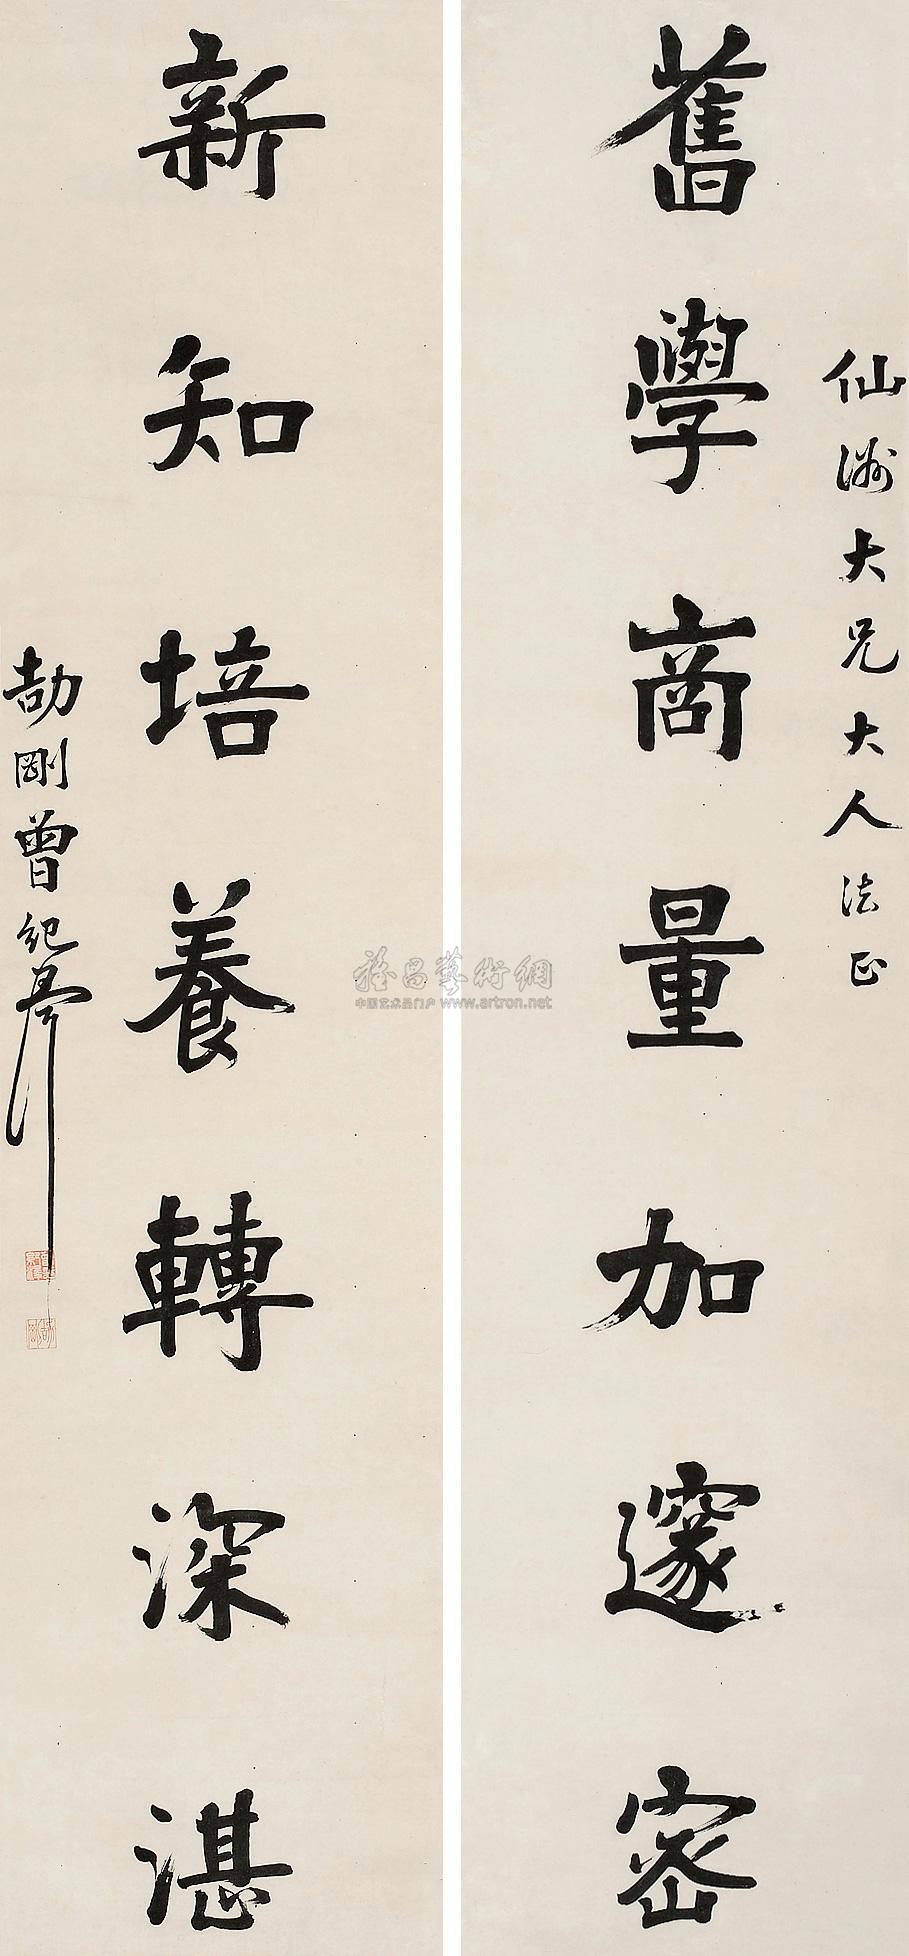 仙洲大兄大人法正
舊學商量加邃密
新知培養轉深湛
劼剛曾紀澤
雅昌藝術網
中国艺术品门户 www.artron.net